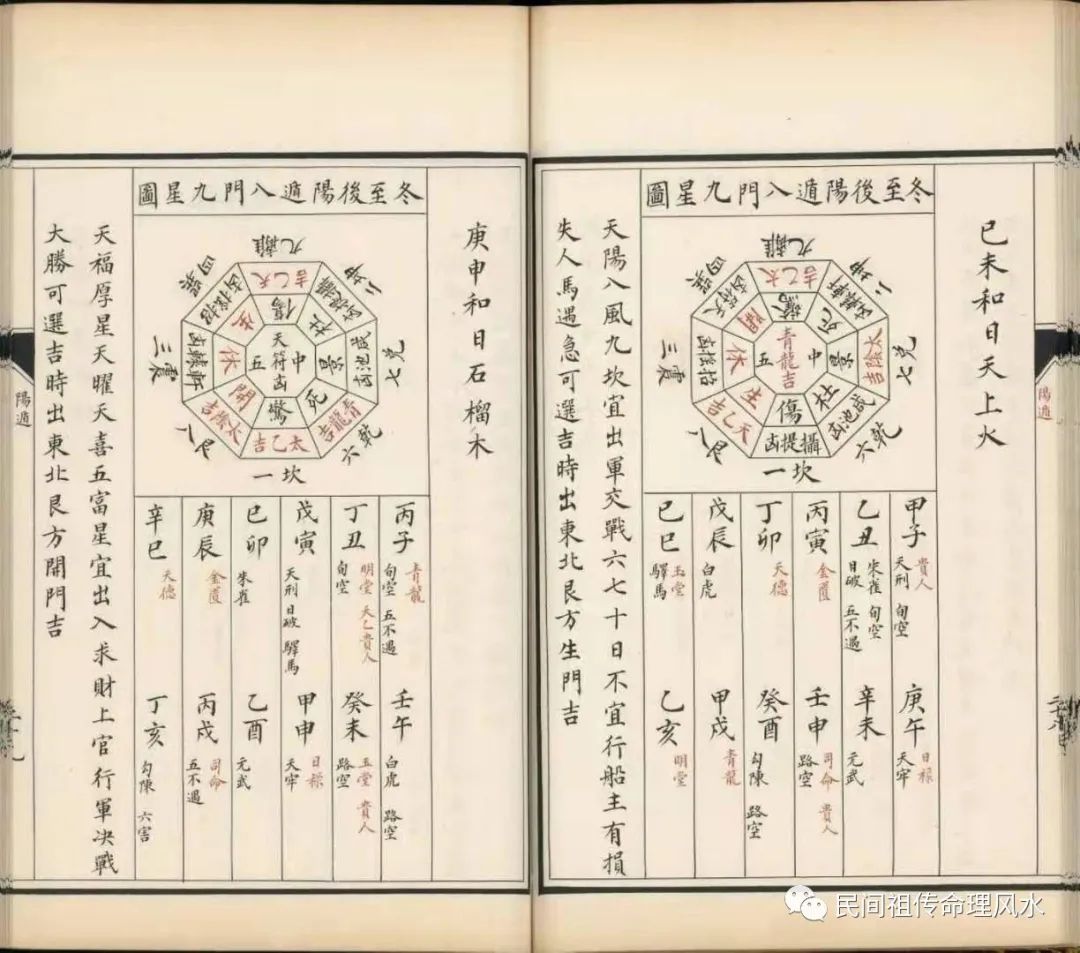 已未和日天上火
冬至後陽遁八門九星圖
九離
二坤
七兌
六乾
一坎
八艮
三震
四巽
太乙吉
軒轅凶
太陰吉
咸池凶
攝提凶
天乙吉
招搖凶
天符凶
驚
死
景
杜
傷
生
休
開
中
青龍吉
五
甲子 貴人 天刑 旬空
庚午 日祿 天牢
乙丑 朱雀 旬空 日破 五不遇
辛未 元武
丙寅 金匱
壬申 司命 貴人 路空
丁卯 天德
癸酉 勾陳 路空
戊辰 白虎
甲戌 青龍
已巳 玉堂 驛馬
乙亥 明堂
天陽八風九坎宜出軍交戰六七十日不宜行船主有損
失人馬遇急可選吉時出東北艮方生門吉
陽遁
庚申和日石榴木
冬至後陽遁八門九星圖
九離
二坤
七兌
六乾
一坎
八艮
三震
四巽
天乙吉
攝提凶
咸池凶
青龍吉
太乙吉
太陰吉
軒轅凶
招搖凶
傷
杜
景
死
驚
開
休
生
中
天符凶
五
丙子 青龍 旬空 五不遇
壬午 白虎 路空
丁丑 明堂 天乙貴人 旬空
癸未 玉堂 貴人 路空
戊寅 天刑 日破 驛馬
甲申 日祿 天牢
已卯 朱雀
乙酉 元武
庚辰 金匱
丙戌 司命 五不遇
辛巳 天德
丁亥 勾陳 六害
天福厚星天曜天喜五富星宜出入求財上官行軍決戰
大勝可選吉時出東北艮方開門吉
陽遁
民间祖传命理风水